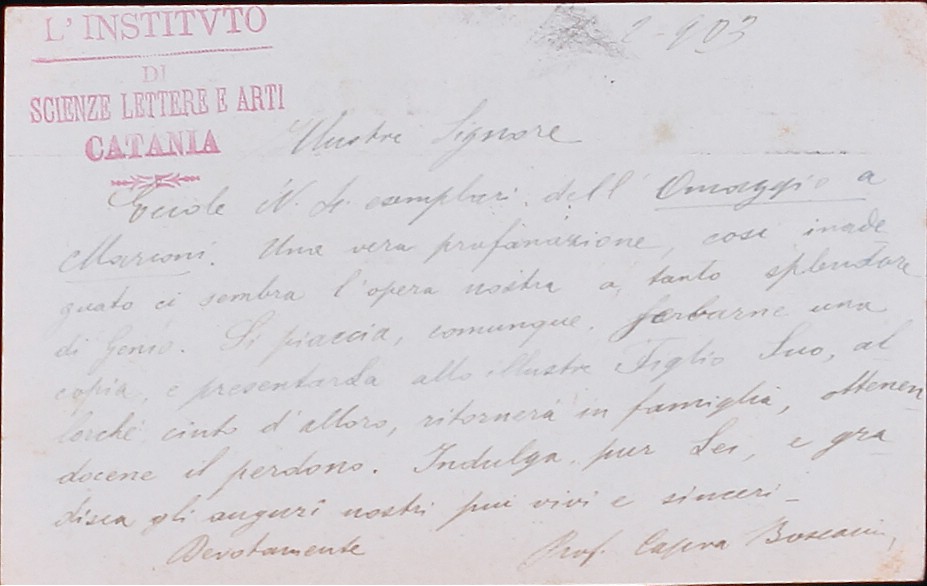 L'INSTITVTO
DI
SCIENZE LETTERE E ARTI
CATANIA
2-903
Illustre Signore
Eccole N. 4 esemplari dell' Omaggio a
Marconi. Una vera profanazione, così inade
guato ci sembra l'opera nostra a tanto splendore
di Genio. Si piaccia, comunque, serbarne una
copia, e presentarla allo illustre Figlio Suo, al
lorchè cinto d'alloro, ritornerà in famiglia, ottenen
docene il perdono. Indulga pur Lei, e gra
disca gli augurî nostri più vivi e sinceri -
Devotamente
Prof.